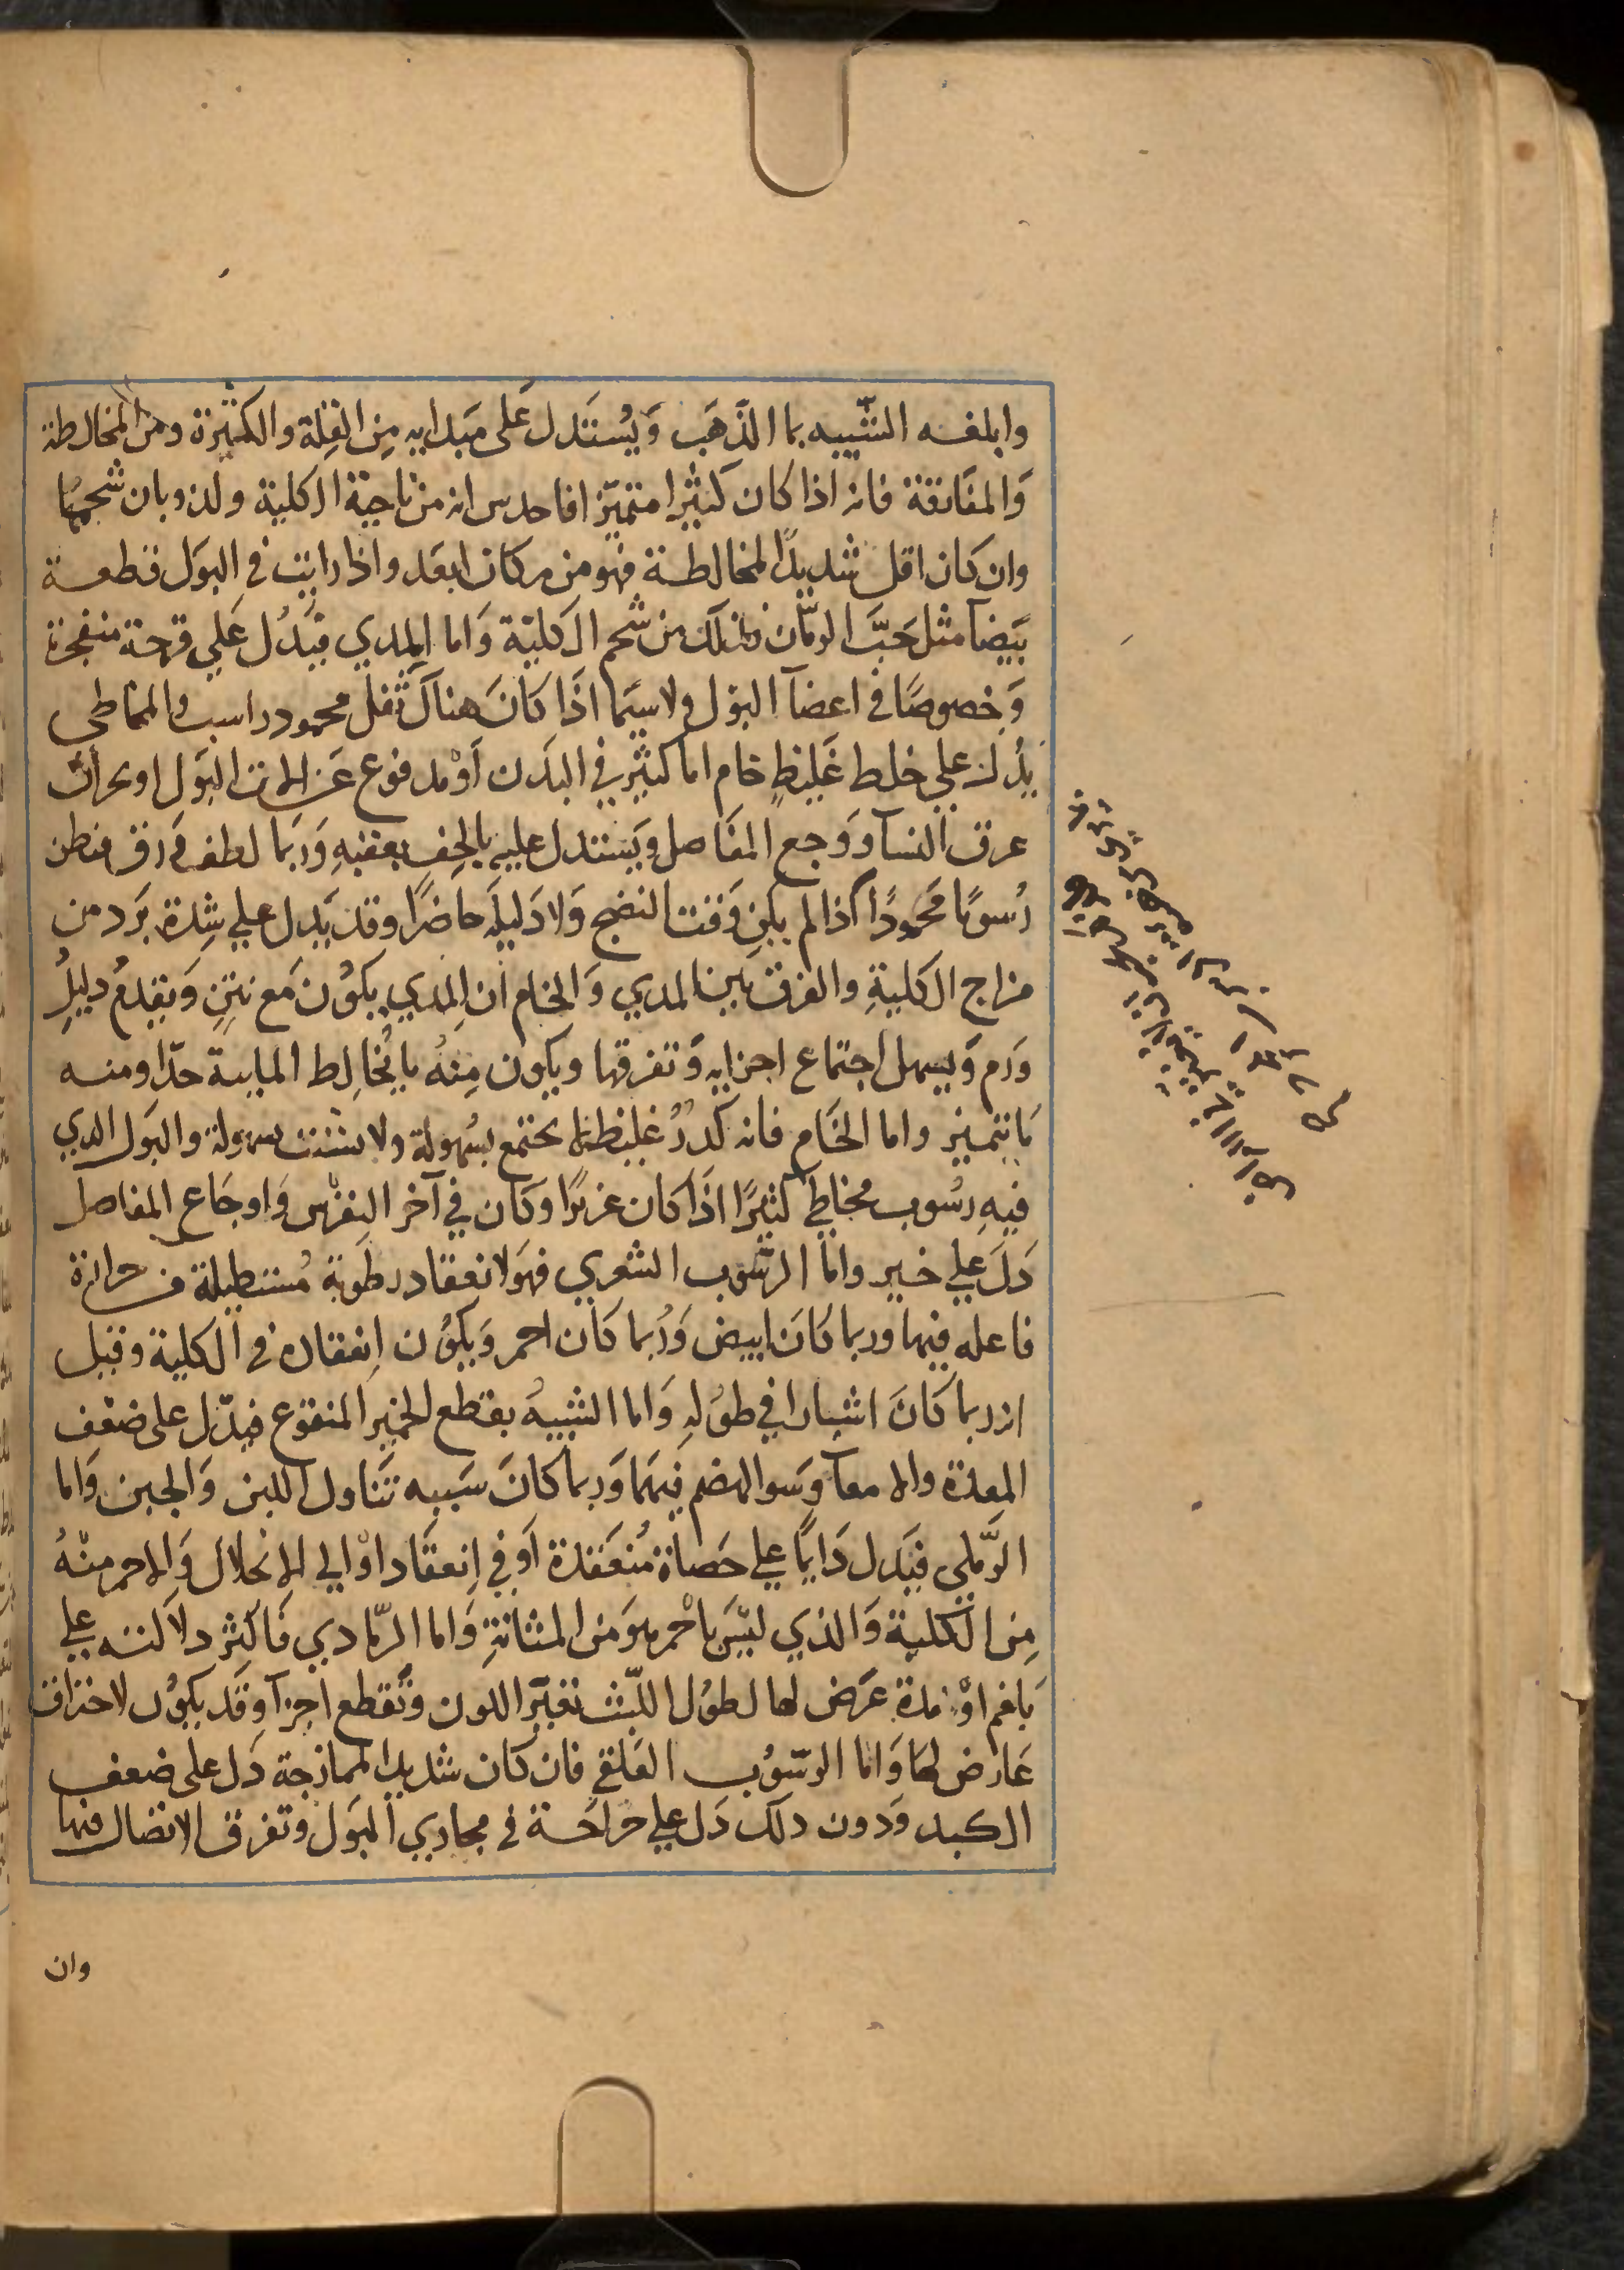 وابلغه الشبيه بما الذهب ويستدل على مبدايه من القلة والكثيرة ومن المخالطة
والمفارقة فانه اذا كان كثيرا متميزا فاحدس انه من ناحية الكلية ولذوبان شحمها
وان كان اقل شديد المخالطة فهو من مكان ابعد واذا رايت في البول قطعة
بيضا مثل حب الرمان فذلك من شحم الكلية واما المدي فيدل على قرحة منفجرة
وخصوصا في اعضآ البول ولاسيما اذا كان هناك ثفل محمود راسب والمخاطي
يدل على خلط غليظ خام اما كثير في البدن او مدفوع عن الات البول او بحران
عرق النسآ ووجع المفاصل ويستدل عليه بالخف يعقبه وربما لطف ورق فظن
رسوبا محمودا اذا لم يكن وقت النضج ولا دليله حاضرا وقد يدل على شدة برد من
مزاج الكلية والفرق بين المدي والخام ان المدي يكون مع نتن ويقدم دليل
ورم ويسهل اجتماع اجزايه وتفرقها ويكون منه ما يخالط المايية جدا ومنه
ما يتميز واما الخام فانه كدر غليظ لا يجتمع بسهولة ولا يتشتت بسهولة والبول الذي
فيه رسوب مخاطي كثيرا اذا كان غزيرا وكان في آخر النقرس واوجاع المفاصل
دل على خير واما الرسوب الشعري فهو لانعقاد رطوبة مستطيلة من حرارة
فاعله فيها وربما كان ابيض وربما كان احمر ويكون انعقاده في الكلية وقيل
انه ربما كان اشبارا في طوله واما الشبيه بقطع الخمير المنقوع فيدل على ضعف
المعدة والامعآ وسو الهضم فيهما وربما كان سببه تناول اللبن والجبن واما
الرملي فيدل دايما على حصاة منعقدة او في انعقاد او الي الانحلال والاحمر منه
من الكلية والذي ليس باحمر هو من المثانة واما الرمادي فاكثر دلالته علي
بلغم او مدة عرض لها لطول اللبث تغير اللون وتقطع اجزآ وقد يكون لاحتراق
عارض لها واما الرسوب العلقي فان كان شديد الممازجة دل على ضعف
الكبد ودون ذلك دل علي جراحة في مجاري البول وتفرق الاتصال فيها
وان